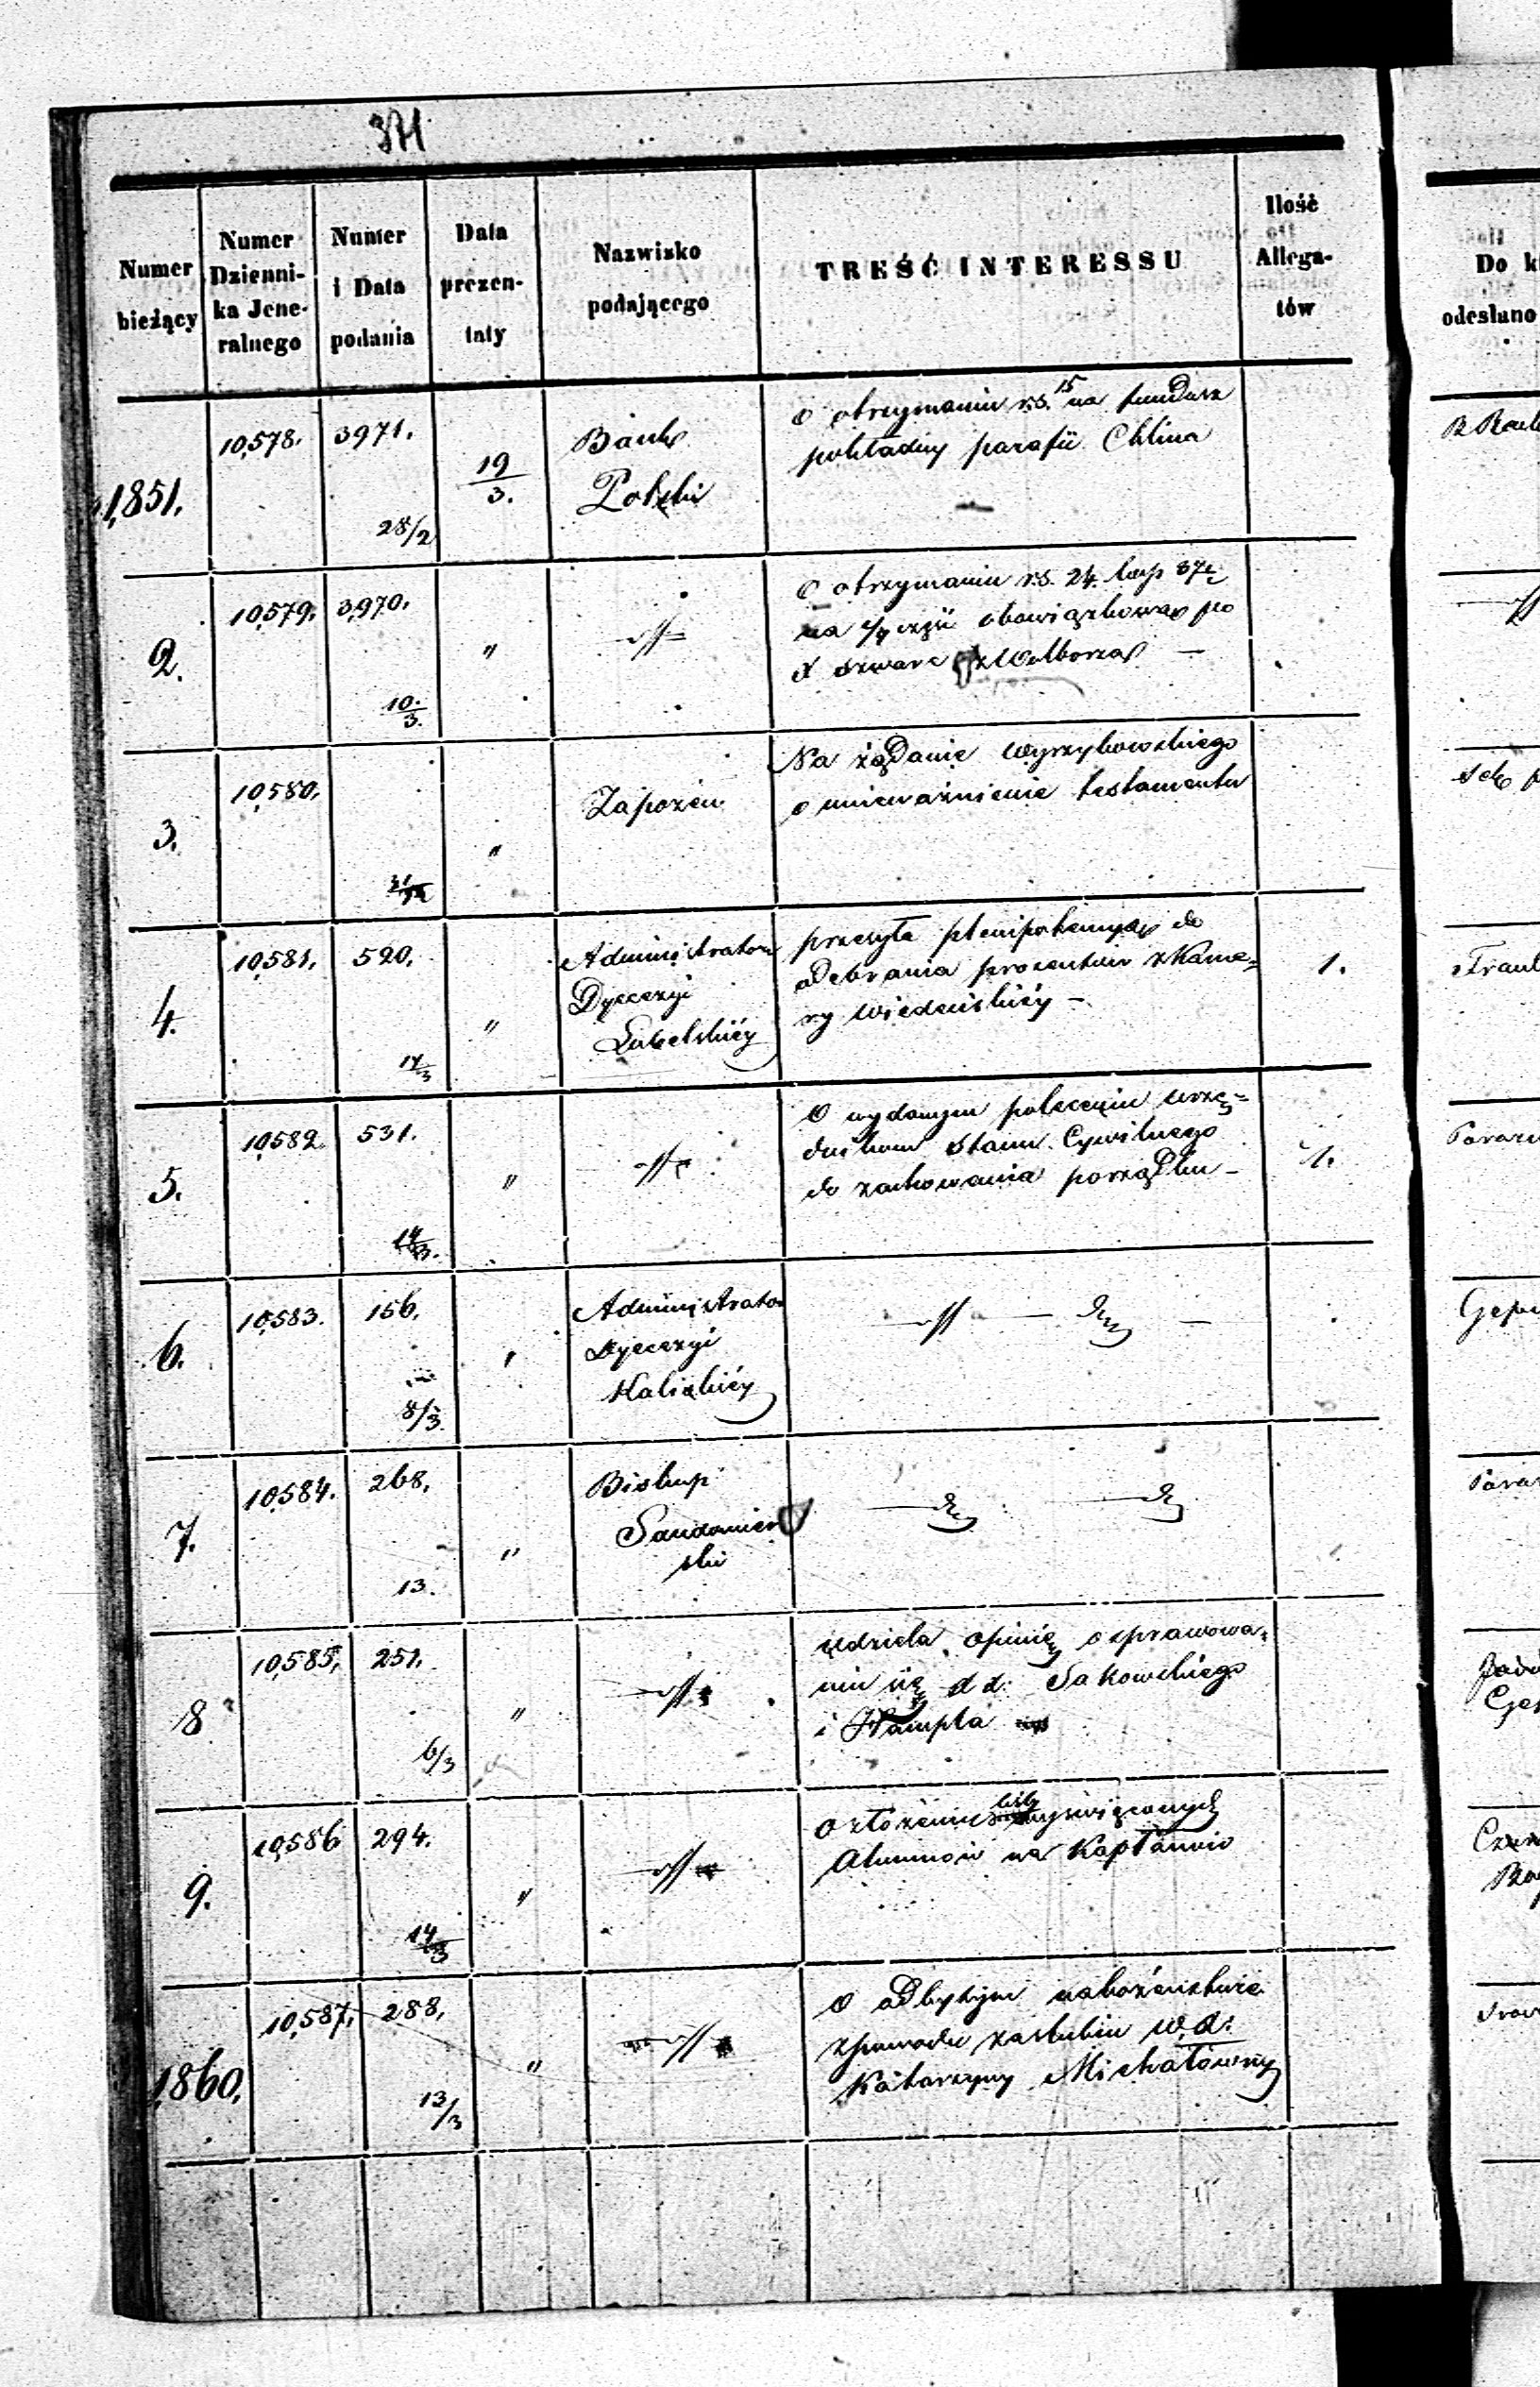 371
Numer bieżący
Numer Dziennika Jeneralnego
Numer i Data podania
Data prezentaty
Nazwisko podającego
TREŚĆ INTERESSU
Ilość Allegatów
Do k
odesłano
1,851. 10,578. 3971. 28/2 19/3. Bank Polski
O otrzymaniu r.s. 15 na fundusz
pokładny parafii Chlina
2. 10,579. 3,970. 10/3. "
O otrzymaniu r.s. 24. kop 37½
na obowiązkową po
X Szwarc z Wolborza —
3. 10,580. " Zapozew
Na żądanie Wyrzykowskiego
o unieważnienie testamentu
4. 10,581. 520. 14/3 " Administrator
Dyecezyi
Lubelskiéy
przesyła plenipotencyą do
odebrania procentów z Kame=
ry Wiedeńskiéy — 1.
5. 10,582. 531. 14/3. "
O wydanym poleceniu urzę=
dnikom Stanu Cywilnego
do zachowania porządku — 1.
6. 10,583. 156. 8/3. " Administrator
Dyecezyi
Kaliskiéy
7. 10,584. 268. 13. " Biskup
Sandomier
ski
8 10,585. 251. 6/3 "
udziela opinię o sprawowa=
niu się d d: Sakowskiego
i Hampla
9. 10,586 294. 14/3 "
O złożenie wyświęconych
Alumnów na Kapłanów
1,860. 10,587. 288. 13/3 "
O odbytym nabożeństwie
z powodu zaślubin W. X:
Katarzyny Michałówny